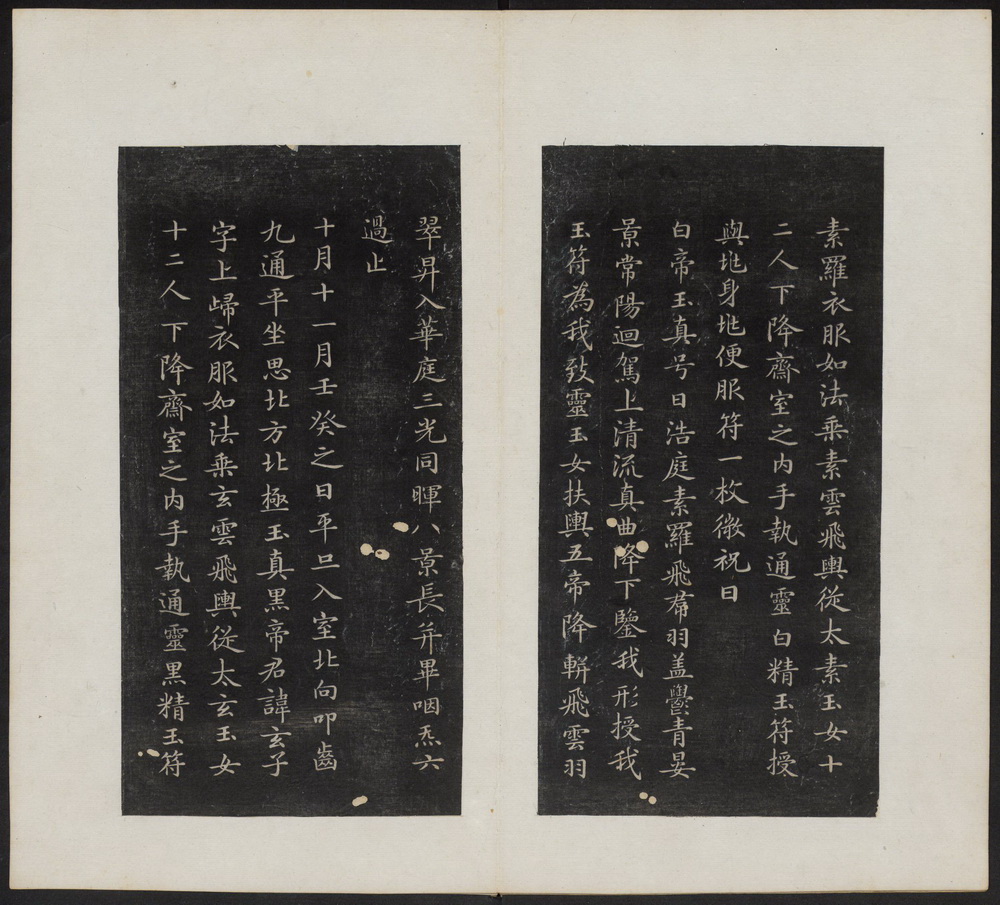 素羅衣服如法乘素雲飛輿從太素玉女十
二人下降齋室之內手執通靈白精玉符授
與地身地便服符一枚微祝曰
白帝玉真号曰浩庭素羅飛帬羽盖鬱青晏
景常陽迴駕上清流真曲降下鑒我形授我
玉符為我致靈玉女扶輿五帝降軿飛雲羽
翠昇入華庭三光同暉八景長并畢咽炁六
過止
十月十一月壬癸之日平旦入室北向叩齒
九通平坐思北方北極玉真黑帝君諱玄子
字上歸衣服如法乘玄雲飛輿從太玄玉女
十二人下降齋室之內手執通靈黑精玉符